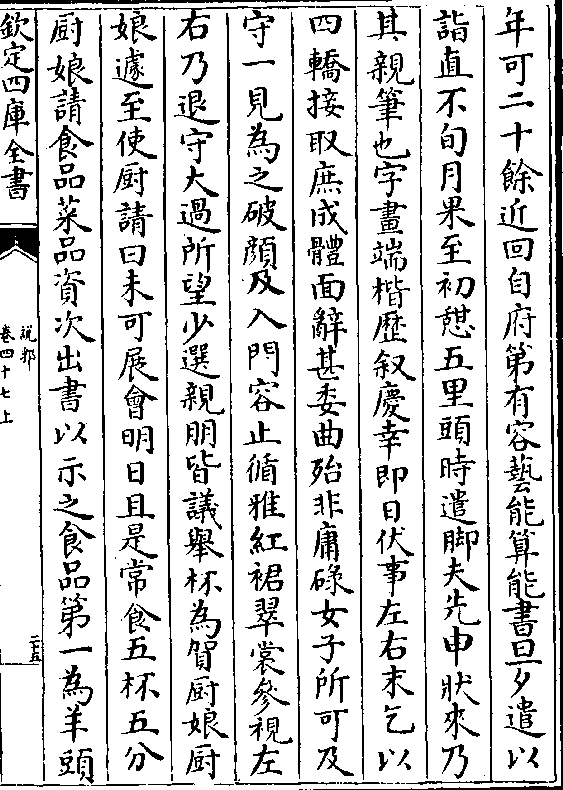 年可二十餘近回自府第有容藝能算能書旦夕遣以
詣直不旬月果至初憩五里頭時遣脚夫先申狀來乃
其親筆也字畫端楷歴叙慶幸即日伏事左右末乞以
四轎接取庶成體面辭甚委曲殆非庸碌女子所可及
守一見為之破顔及入門容止循雅紅裙翠裳參視左
右乃退守大過所望少選親朋皆議舉杯為賀厨娘厨
娘遽至使厨請曰未可展會明日且是常食五杯五分
厨娘請食品菜品資次出書以示之食品第一為羊頭
欽定四庫全書
說郛
卷四十七上
二十五